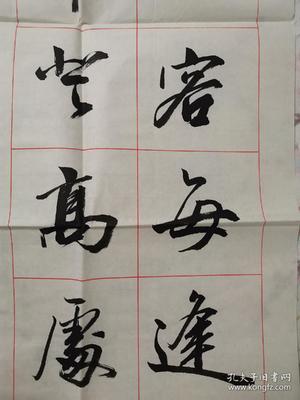 容每逢
登高處
孔夫子旧书网
www.kongfz.com